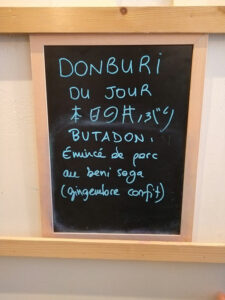 DONBURI
DU JOUR
本日の丼ぶり
BUTADON.
Émincé de porc
au beni soga
(gingembre confit)